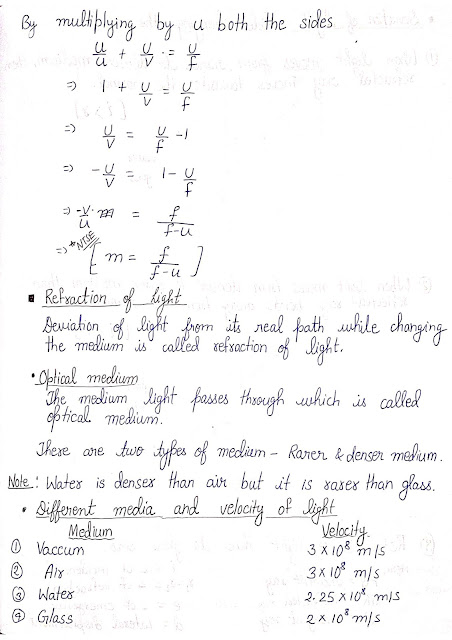 By multiplying by u both the sides
u/u + u/v = u/f
=> 1 + u/v = u/f
=> u/v = u/f - 1
=> - u/v = 1 - u/f
=> -v/u = f/f-u
=> *NTSE [ m = f/f-u ]
▪ Refraction of light
Deviation of light from its real path while changing
the medium is called refraction of light.
• Optical medium
The medium light passes through which is called
optical medium.
There are two types of medium - Rarer & denser medium.
Note: Water is denser than air but it is rarer than glass.
• Different media and velocity of light
Medium Velocity
① Vaccum 3 x 10⁸ m/s
② Air 3 x 10⁸ m/s
③ Water 2.25 x 10⁸ m/s
④ Glass 2 x 10⁸ m/s